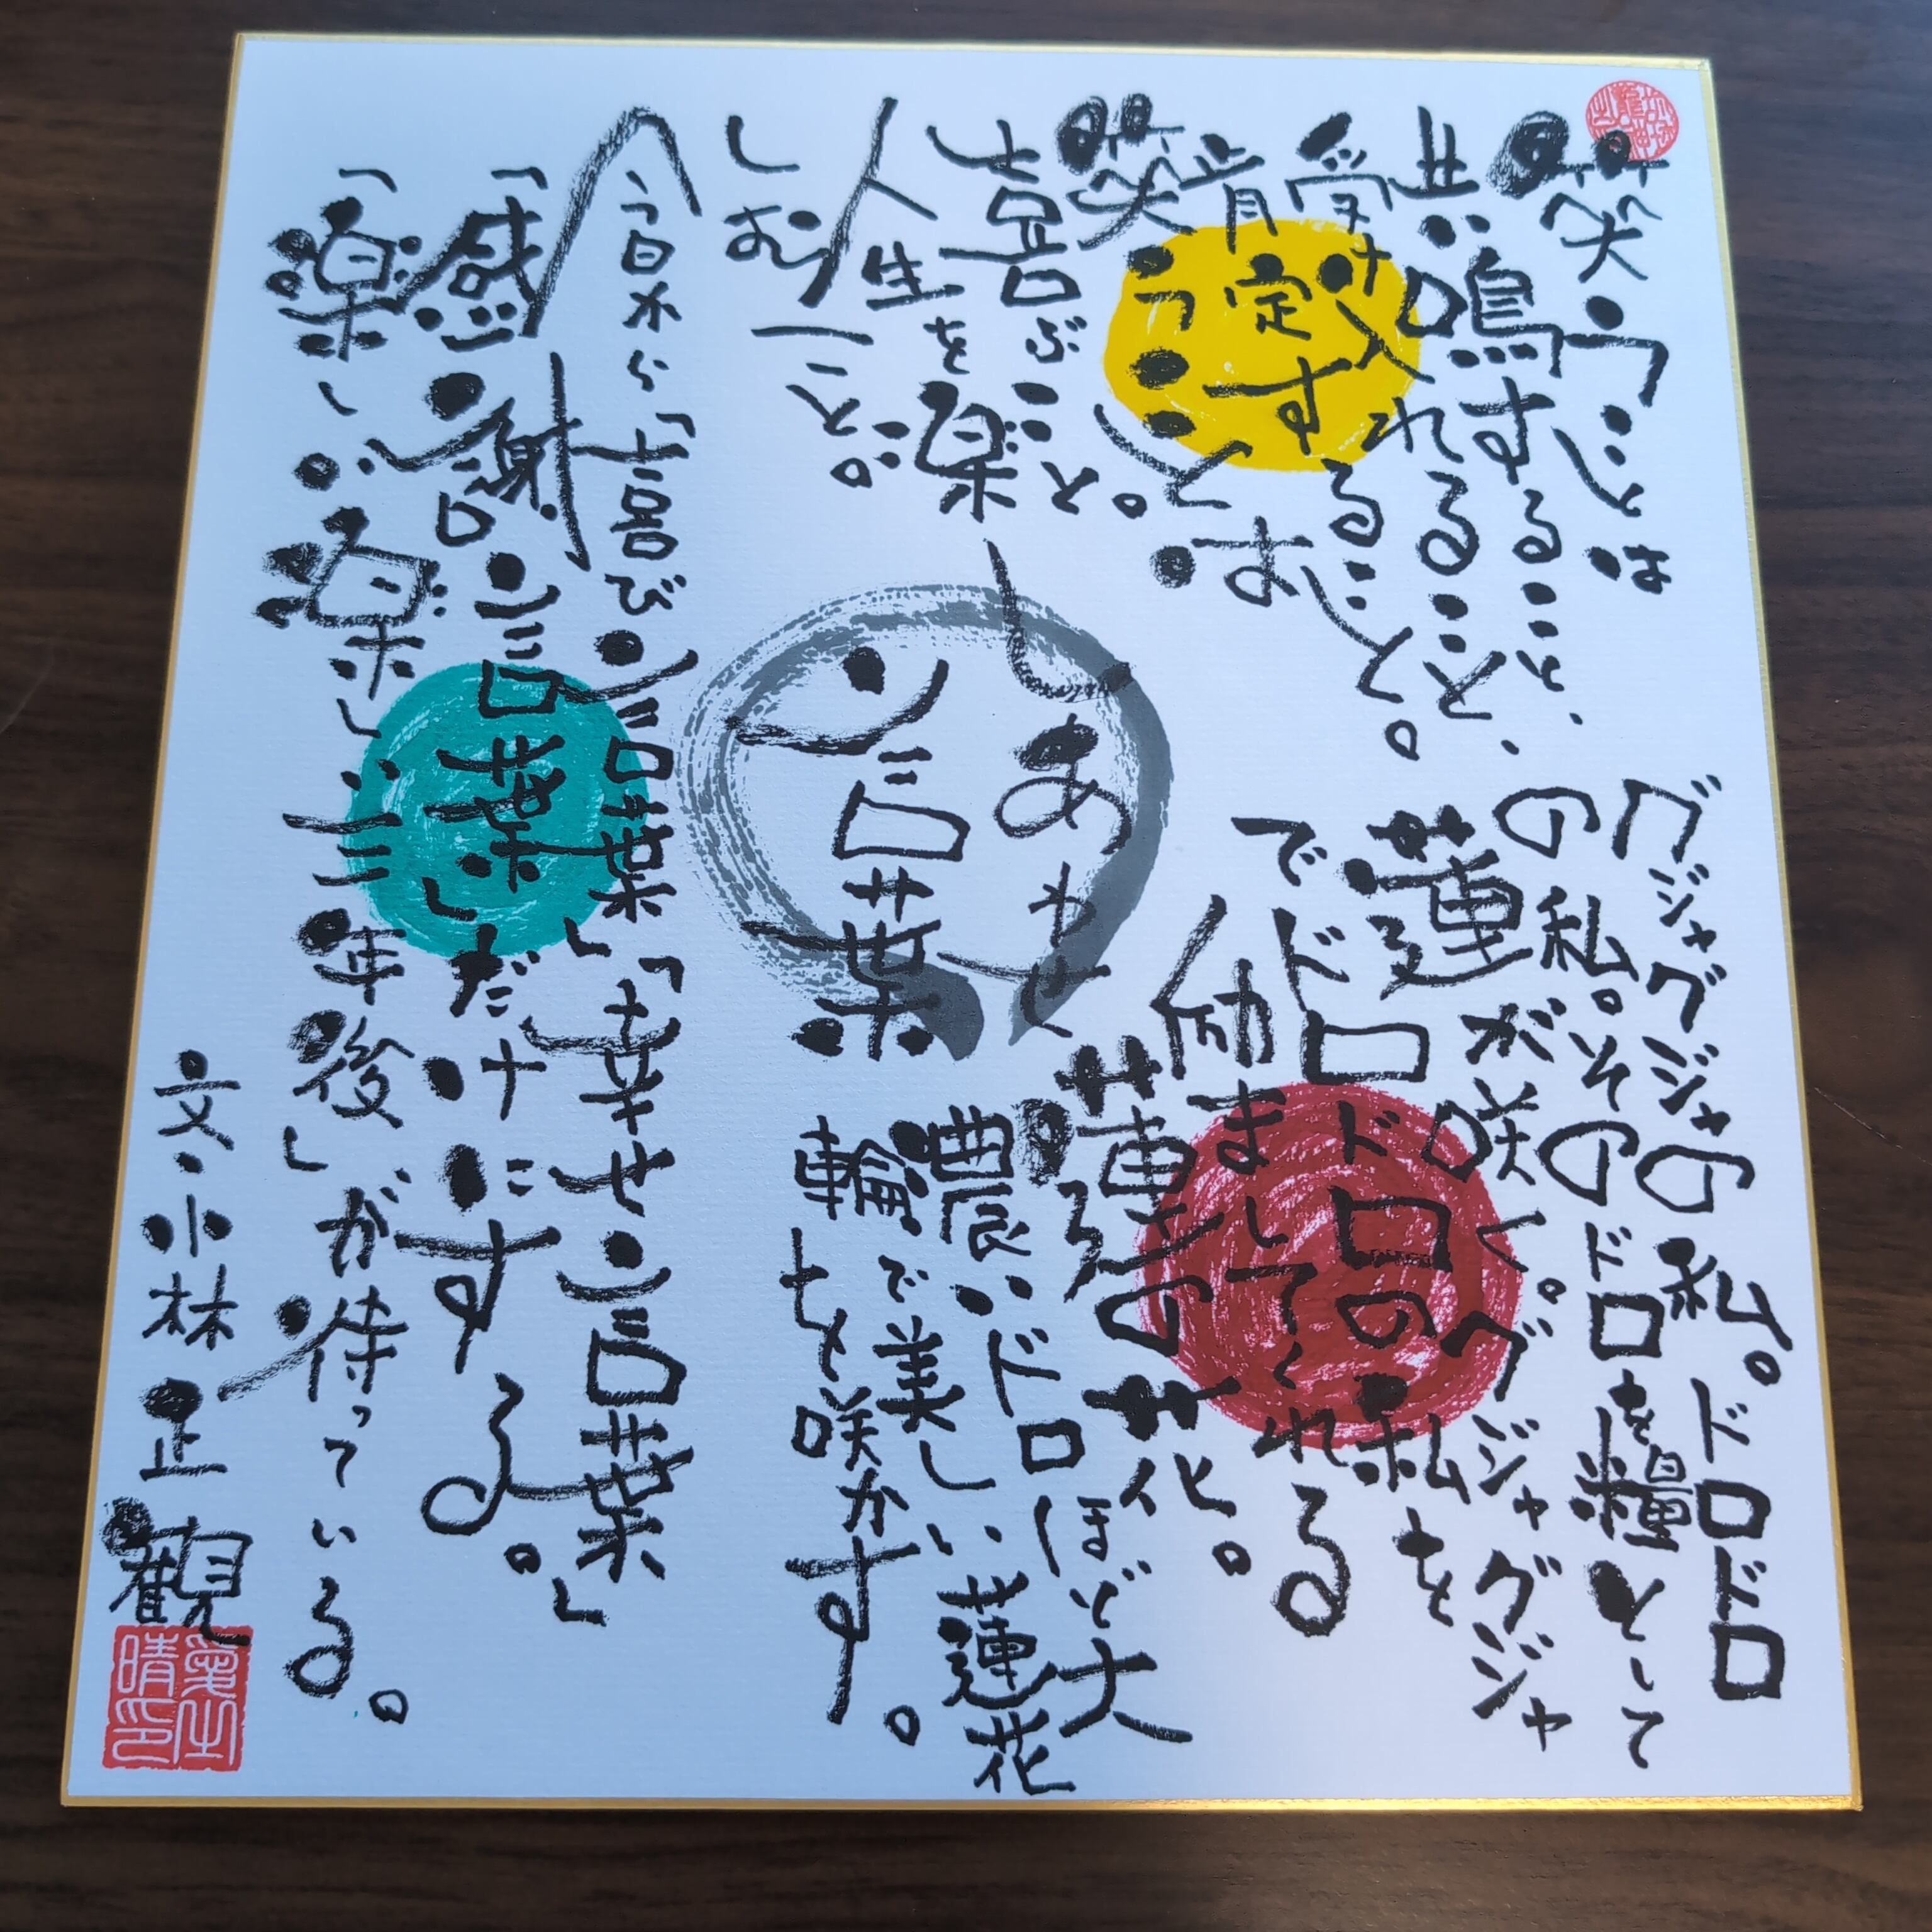 笑うことは
共鳴すること、
受け入れること、
肯定すること。
笑うことは
喜ぶこと。
人生を楽
しむこと。
グジャグジャの私。ドロドロ
の私。そのドロを糧として
蓮が咲く。グジャグジャ
でドロドロの私を
励ましてくれる
蓮の花。
濃いドロほど大
輪で美しい蓮花
を咲かす。
しあわせ
言葉
今日から「喜び言葉」「幸せ言葉」
「感謝言葉」だけにする。
「楽しい楽しい三年後」が待っている。
文・小林正観